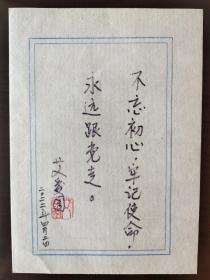 不忘初心，牢记使命，
永远跟党走。
艾爱国
二〇二二年四月二日